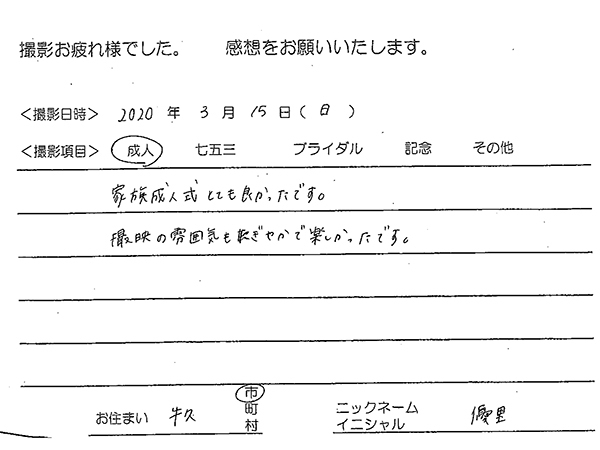 撮影お疲れ様でした。 感想をお願いいたします。
＜撮影日時＞ 2020 年 3 月 15 日（ 日 ）
＜撮影項目＞ 成人 七五三 ブライダル 記念 その他
家族成人式とても良かったです。
撮映の雰囲気もにぎやかで楽しかったです。
お住まい 牛久 市町村
ニックネーム
イニシャル 優里